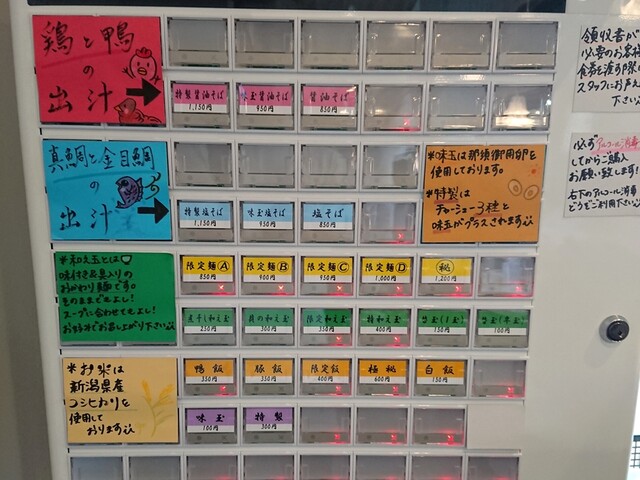 鶏と鴨
の
出汁
特製醤油そば
1,150円
味玉醤油そば
950円
醤油そば
850円
真鯛と金目鯛
の
出汁
特製塩そば
1,150円
味玉塩そば
950円
塩そば
850円
※味玉は那須御用卵を
使用しております。
※特製は
チャーシュー3種と
味玉がプラスされます
※和え玉とは
味付き具入りの
おかわり麺です。
そのままでもよし!
スープに合わせてもよし!
お好みでお召し上がり下さい
限定麺Ⓐ
850円
限定麺Ⓑ
900円
限定麺Ⓒ
950円
限定麺Ⓓ
1,000円
㊙
1,200円
煮干し和え玉
250円
貝の和え玉
300円
限定和え玉
350円
特和え玉
400円
150円
100円
※お米は
新潟県産
コシヒカリを
使用して
おります
鴨飯
350円
豚飯
350円
限定飯
400円
極秘
600円
白飯
150円
味玉
100円
特製
300円
領収書が
必要のお客様
食券を渡す際に
スタッフにお声え
下さい
必ずアルコール消毒
してからご購入
お願い致します!
右下のアルコール消毒
どうぞご利用下さい